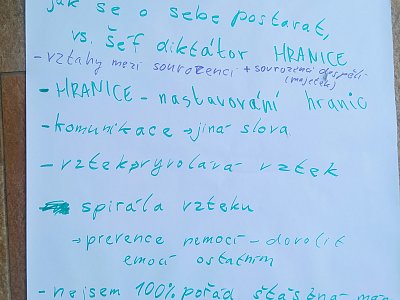 jak se o sebe postarat,
vs. šéf diktátor HRANICE
- vztahy mezi sourozenci + sourozenci dospělí -
(majetek)
- HRANICE - nastavování hranic
- komunikace → jiná slova
- vztek vyvolává vztek
spirála vzteku
→ prevence nemocí - dovolit
emocí ostatním
- nejsem 100% pořád šťastná